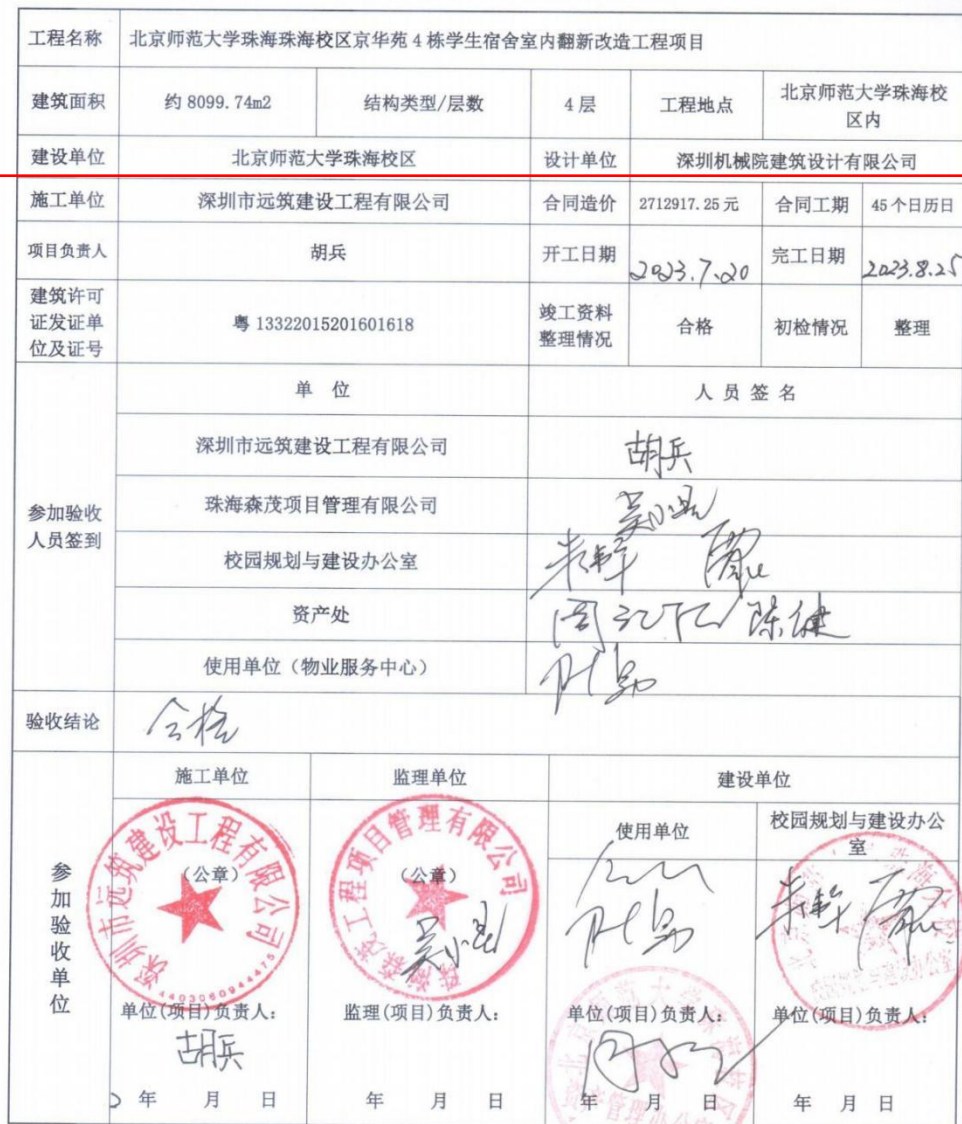 工程名称 北京师范大学珠海珠海校区京华苑 4 栋学生宿舍室内翻新改造工程项目
建筑面积 约 8099.74m2 结构类型/层数 4 层 工程地点 北京师范大学珠海校
区内
建设单位 北京师范大学珠海校区 设计单位 深圳机械院建筑设计有限公司
施工单位 深圳市远筑建设工程有限公司 合同造价 2712917.25 元 合同工期 45 个日历日
项目负责人 胡兵 开工日期 2023.7.20 完工日期 2023.8.25
建筑许可
证发证单
位及证号
粤 13322015201601618
竣工资料
整理情况
合格 初检情况 整理
参加验收
人员签到
单 位 人 员 签 名
深圳市远筑建设工程有限公司 胡兵
珠海森茂项目管理有限公司
校园规划与建设办公室
资产处 陈健
使用单位（物业服务中心）
验收结论 合格
参加验收单位
施工单位 监理单位 建设单位
使用单位 校园规划与建设办公
室
深圳市远筑建设工程有限公司
4403060944475
工程项目管理有限公司
（公章） （公章）
单位(项目)负责人： 监理(项目)负责人： 单位(项目)负责人： 单位(项目)负责人：
胡兵
年 月 日 年 月 日 年 月 日 年 月 日